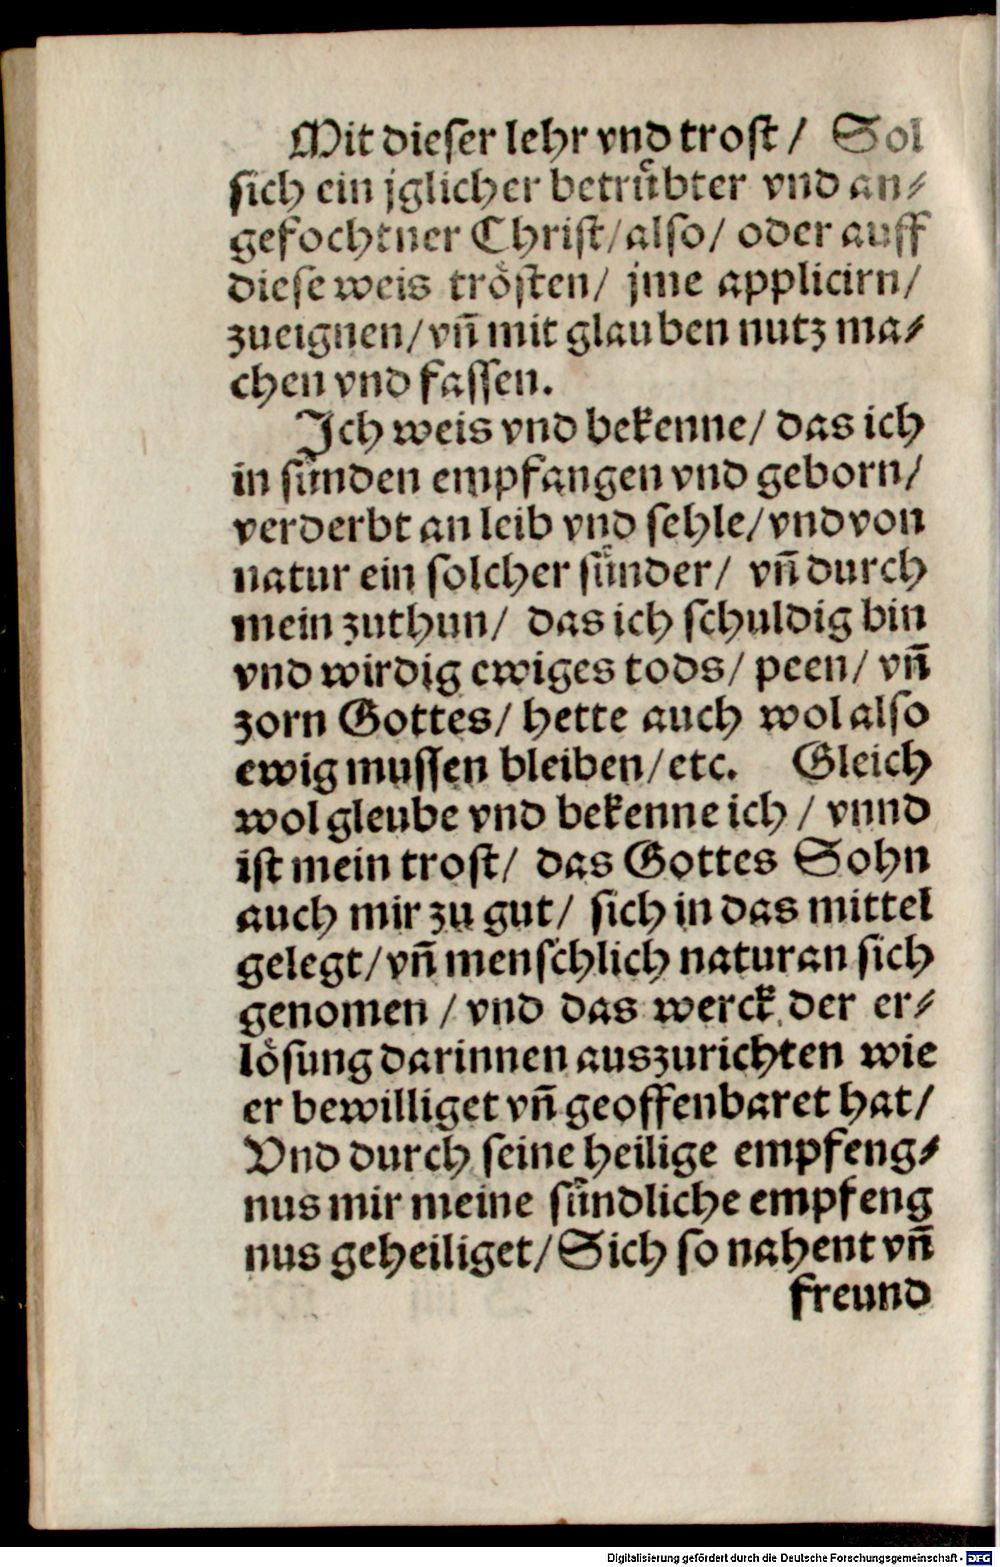 Mit dieser lehr vnd trost / Sol
sich ein jglicher betruͤbter vnd an⸗
gefochtner Christ / also / oder auff
diese weis troͤsten / jme applicirn /
zueignen / vñ mit glauben nutz ma⸗
chen vnd fassen.
Ich weis vnd bekenne / das ich
in suͤnden empfangen vnd geborn /
verderbt an leib vnd sehle / vnd von
natur ein solcher suͤnder / vñ durch
mein zuthun / das ich schuldig bin
vnd wirdig ewiges tods / peen / vñ
zorn Gottes / hette auch wol also
ewig mussen bleiben / etc. Gleich
wol gleube vnd bekenne ich / vnnd
ist mein trost / das Gottes Sohn
auch mir zu gut / sich in das mittel
gelegt / vñ menschlich natur an sich
genomen / vnd das werck der er⸗
loͤsung darinnen auszurichten wie
er bewilliget vñ geoffenbaret hat /
Vnd durch seine heilige empfeng⸗
nus mir meine suͤndliche empfeng
nus geheiliget / Sich so nahent vñ
freund
Digitalisierung gefördert durch die Deutsche Forschungsgemeinschaft - DFG